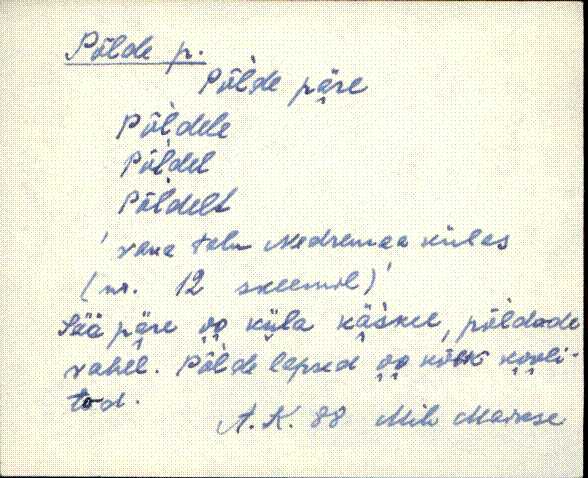 Põlde p.
Põlde päre
Põldele
Põldel
Põldelt
'vana talu Nedremaa külas
(nr. 12 skeemil)'
Sää päre oo küla käskel, põldade
vahel. Põlde lapsed oo kõik kooli-
tod.
A. K. 88 Mih